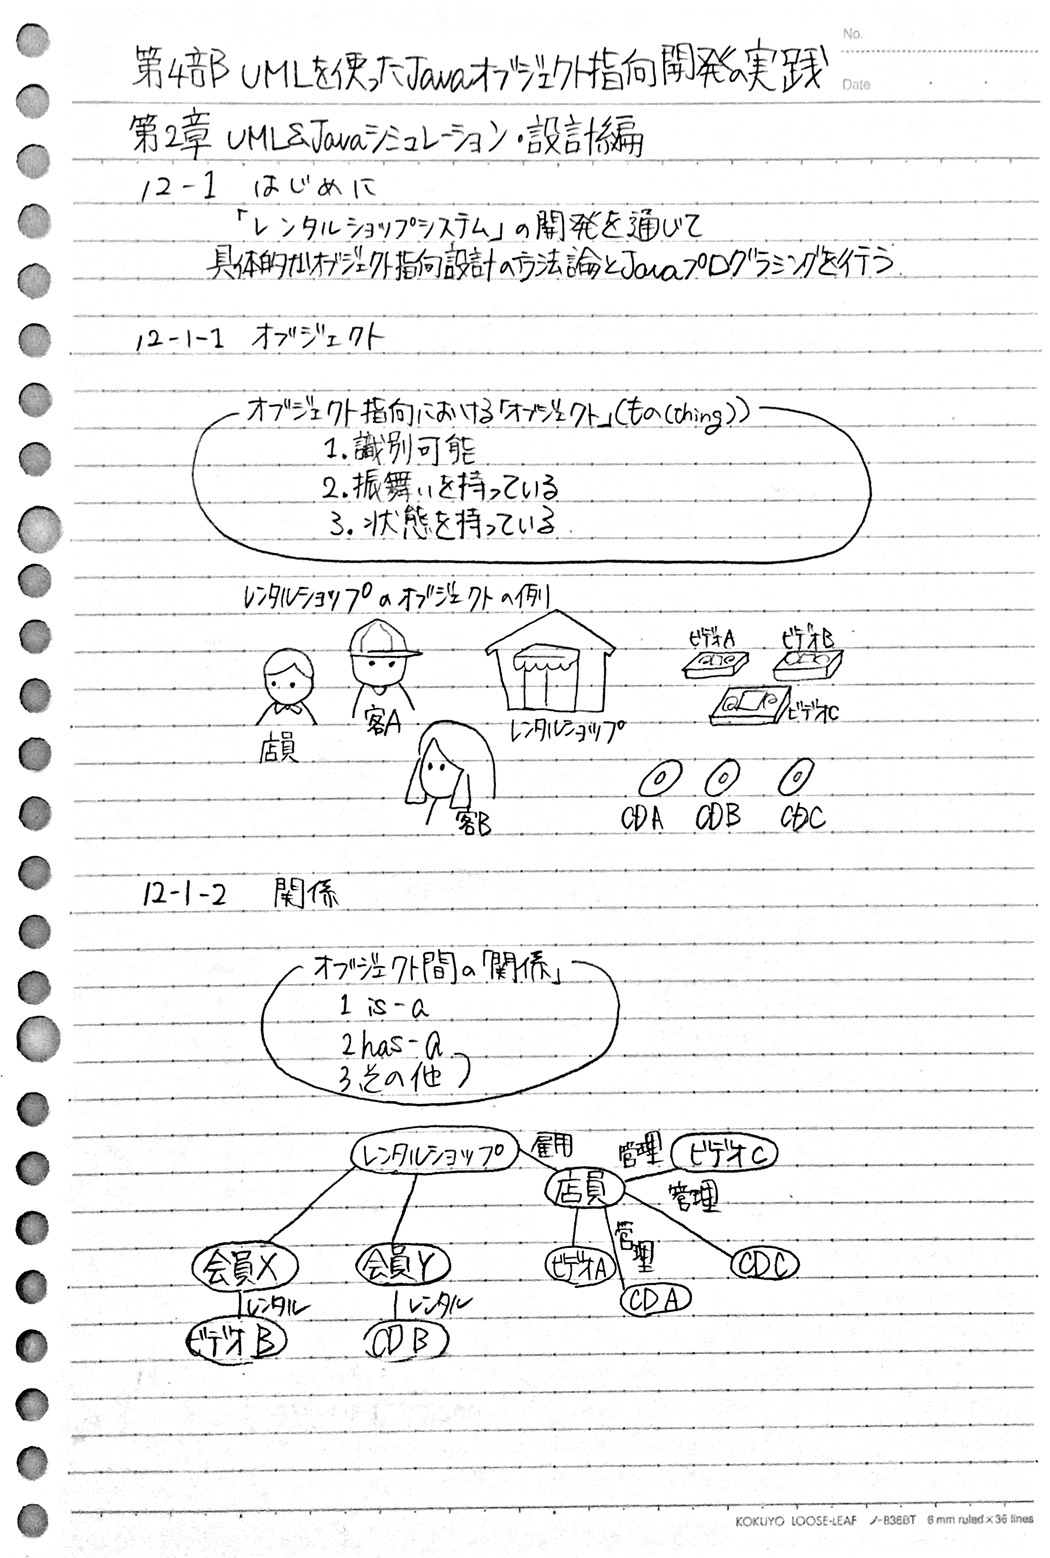 No.
Date
第4部B UMLを使ったJavaオブジェクト指向開発の実践
第2章 UML&Javaシミュレーション・設計編
12-1 はじめに
「レンタルショップシステム」の開発を通じて
具体的なオブジェクト指向設計の方法論とJavaプログラミングを行う
12-1-1 オブジェクト
オブジェクト指向における「オブジェクト」(もの(thing))
1.識別可能
2.振舞いを持っている
3.状態を持っている
レンタルショップのオブジェクトの例
ビデオA ビデオB
ビデオC
客A レンタルショップ
店員
客B CDA CDB CDC
12-1-2 関係
オブジェクト間の「関係」
1 is-a
2 has-a
3 その他
レンタルショップ 雇用 管理 ビデオC
店員 管理
管理
会員X 会員Y ビデオA CDC
レンタル レンタル CDA
ビデオB CDB
KOKUYO LOOSE-LEAF ノ-836BT 6 mm ruled×36 lines